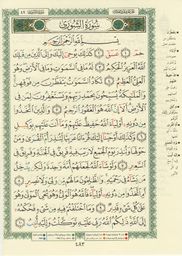 سُورَةُ الشُّورَىٰ
بِسْمِ اللَّهِ الرَّحْمَٰنِ الرَّحِيمِ
حمٓ ١ عٓسٓقٓ ٢ كَذَٰلِكَ يُوحِىٓ إِلَيْكَ وَإِلَى الَّذِينَ مِن قَبْلِكَ
اللَّهُ الْعَزِيزُ الْحَكِيمُ ٣ لَهُۥ مَا فِى السَّمَٰوَٰتِ وَمَا فِى الْأَرْضِ وَهُوَ
الْعَلِىُّ الْعَظِيمُ ٤ تَكَادُ السَّمَٰوَٰتُ يَتَفَطَّرْنَ مِن فَوْقِهِنَّ
وَالْمَلَٰٓئِكَةُ يُسَبِّحُونَ بِحَمْدِ رَبِّهِمْ وَيَسْتَغْفِرُونَ لِمَن فِى
الْأَرْضِ أَلَآ إِنَّ اللَّهَ هُوَ الْغَفُورُ الرَّحِيمُ ٥ وَالَّذِينَ اتَّخَذُوا
مِن دُونِهِۦٓ أَوْلِيَآءَ اللَّهُ حَفِيظٌ عَلَيْهِمْ وَمَآ أَنتَ عَلَيْهِم بِوَكِيلٍ
٦ وَكَذَٰلِكَ أَوْحَيْنَآ إِلَيْكَ قُرْءَانًا عَرَبِيًّا لِّتُنذِرَ أُمَّ الْقُرَىٰ وَمَنْ
حَوْلَهَا وَتُنذِرَ يَوْمَ الْجَمْعِ لَا رَيْبَ فِيهِ فَرِيقٌ فِى الْجَنَّةِ وَفَرِيقٌ فِى
السَّعِيرِ ٧ وَلَوْ شَآءَ اللَّهُ لَجَعَلَهُمْ أُمَّةً وَٰحِدَةً وَلَٰكِن يُدْخِلُ
مَن يَشَآءُ فِى رَحْمَتِهِۦ وَالظَّٰلِمُونَ مَا لَهُم مِّن وَلِىٍّ وَلَا نَصِيرٍ ٨
أَمِ اتَّخَذُوا مِن دُونِهِۦٓ أَوْلِيَآءَ فَاللَّهُ هُوَ الْوَلِىُّ وَهُوَ يُحْىِ الْمَوْتَىٰ وَهُوَ
عَلَىٰ كُلِّ شَىْءٍ قَدِيرٌ ٩ وَمَا اخْتَلَفْتُمْ فِيهِ مِن شَىْءٍ فَحُكْمُهُۥٓ
إِلَى اللَّهِ ذَٰلِكُمُ اللَّهُ رَبِّى عَلَيْهِ تَوَكَّلْتُ وَإِلَيْهِ أُنِيبُ ١٠
٤٨٣